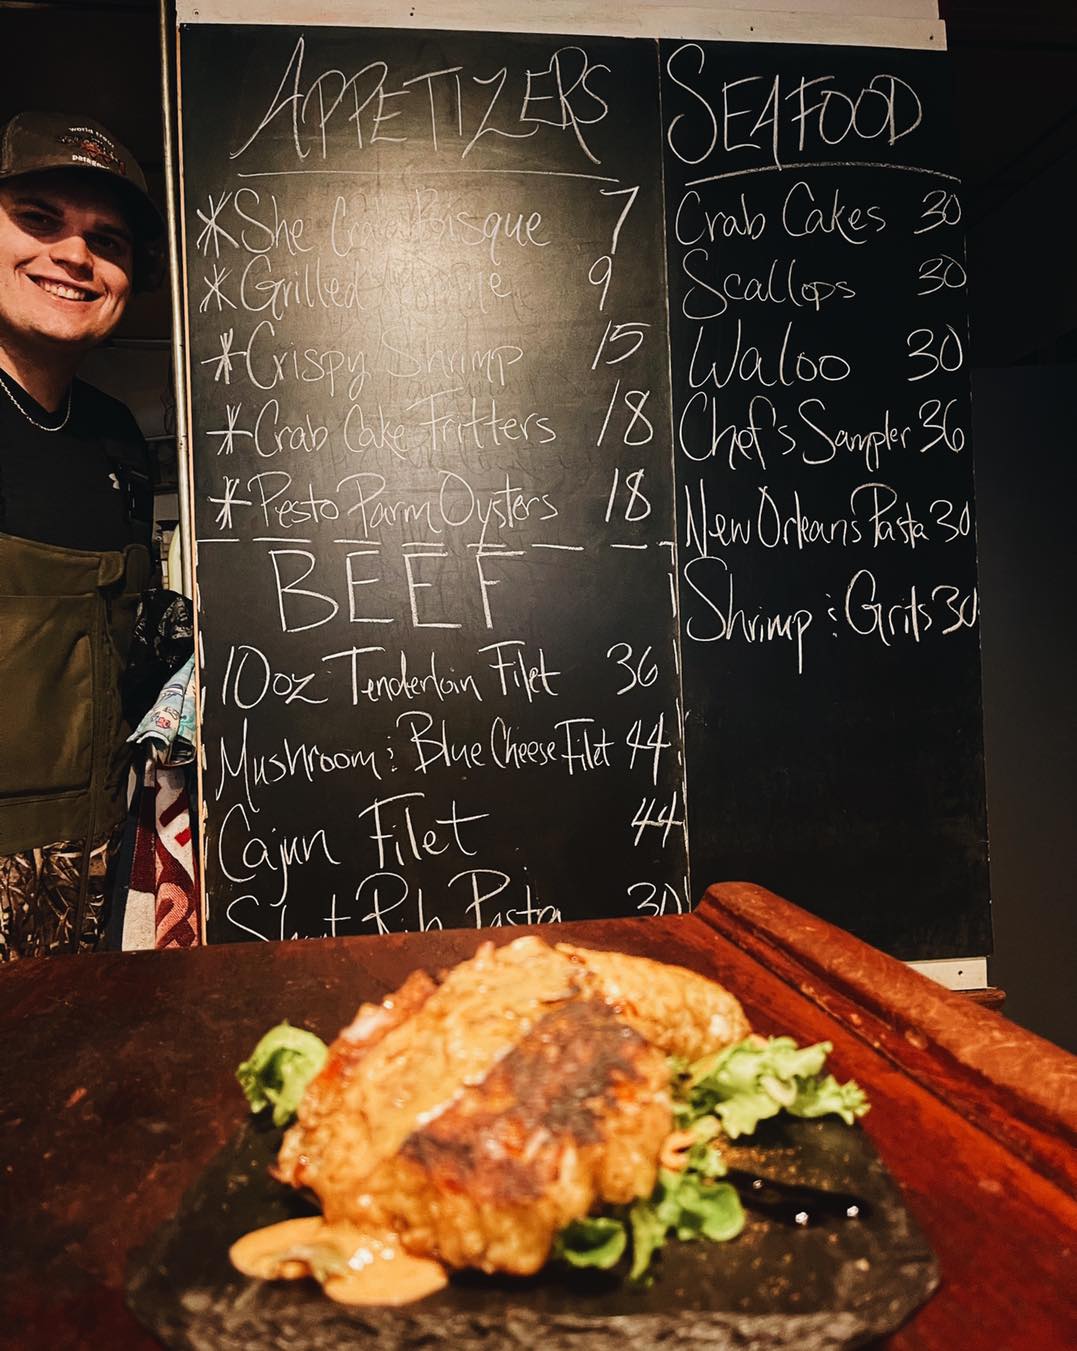 world trout
patagonia
APPETIZERS
*She Crab Bisque 7
*Grilled Romaine 9
*Crispy Shrimp 15
*Crab Cake Fritters 18
*Pesto Parm Oysters 18
BEEF
10oz Tenderloin Filet 36
Mushroom & Blue Cheese Filet 44
Cajun Filet 44
Short Rib Pasta 30
SEAFOOD
Crab Cakes 30
Scallops 30
Waloo 30
Chef's Sampler 36
New Orleans Pasta 30
Shrimp & Grits 30